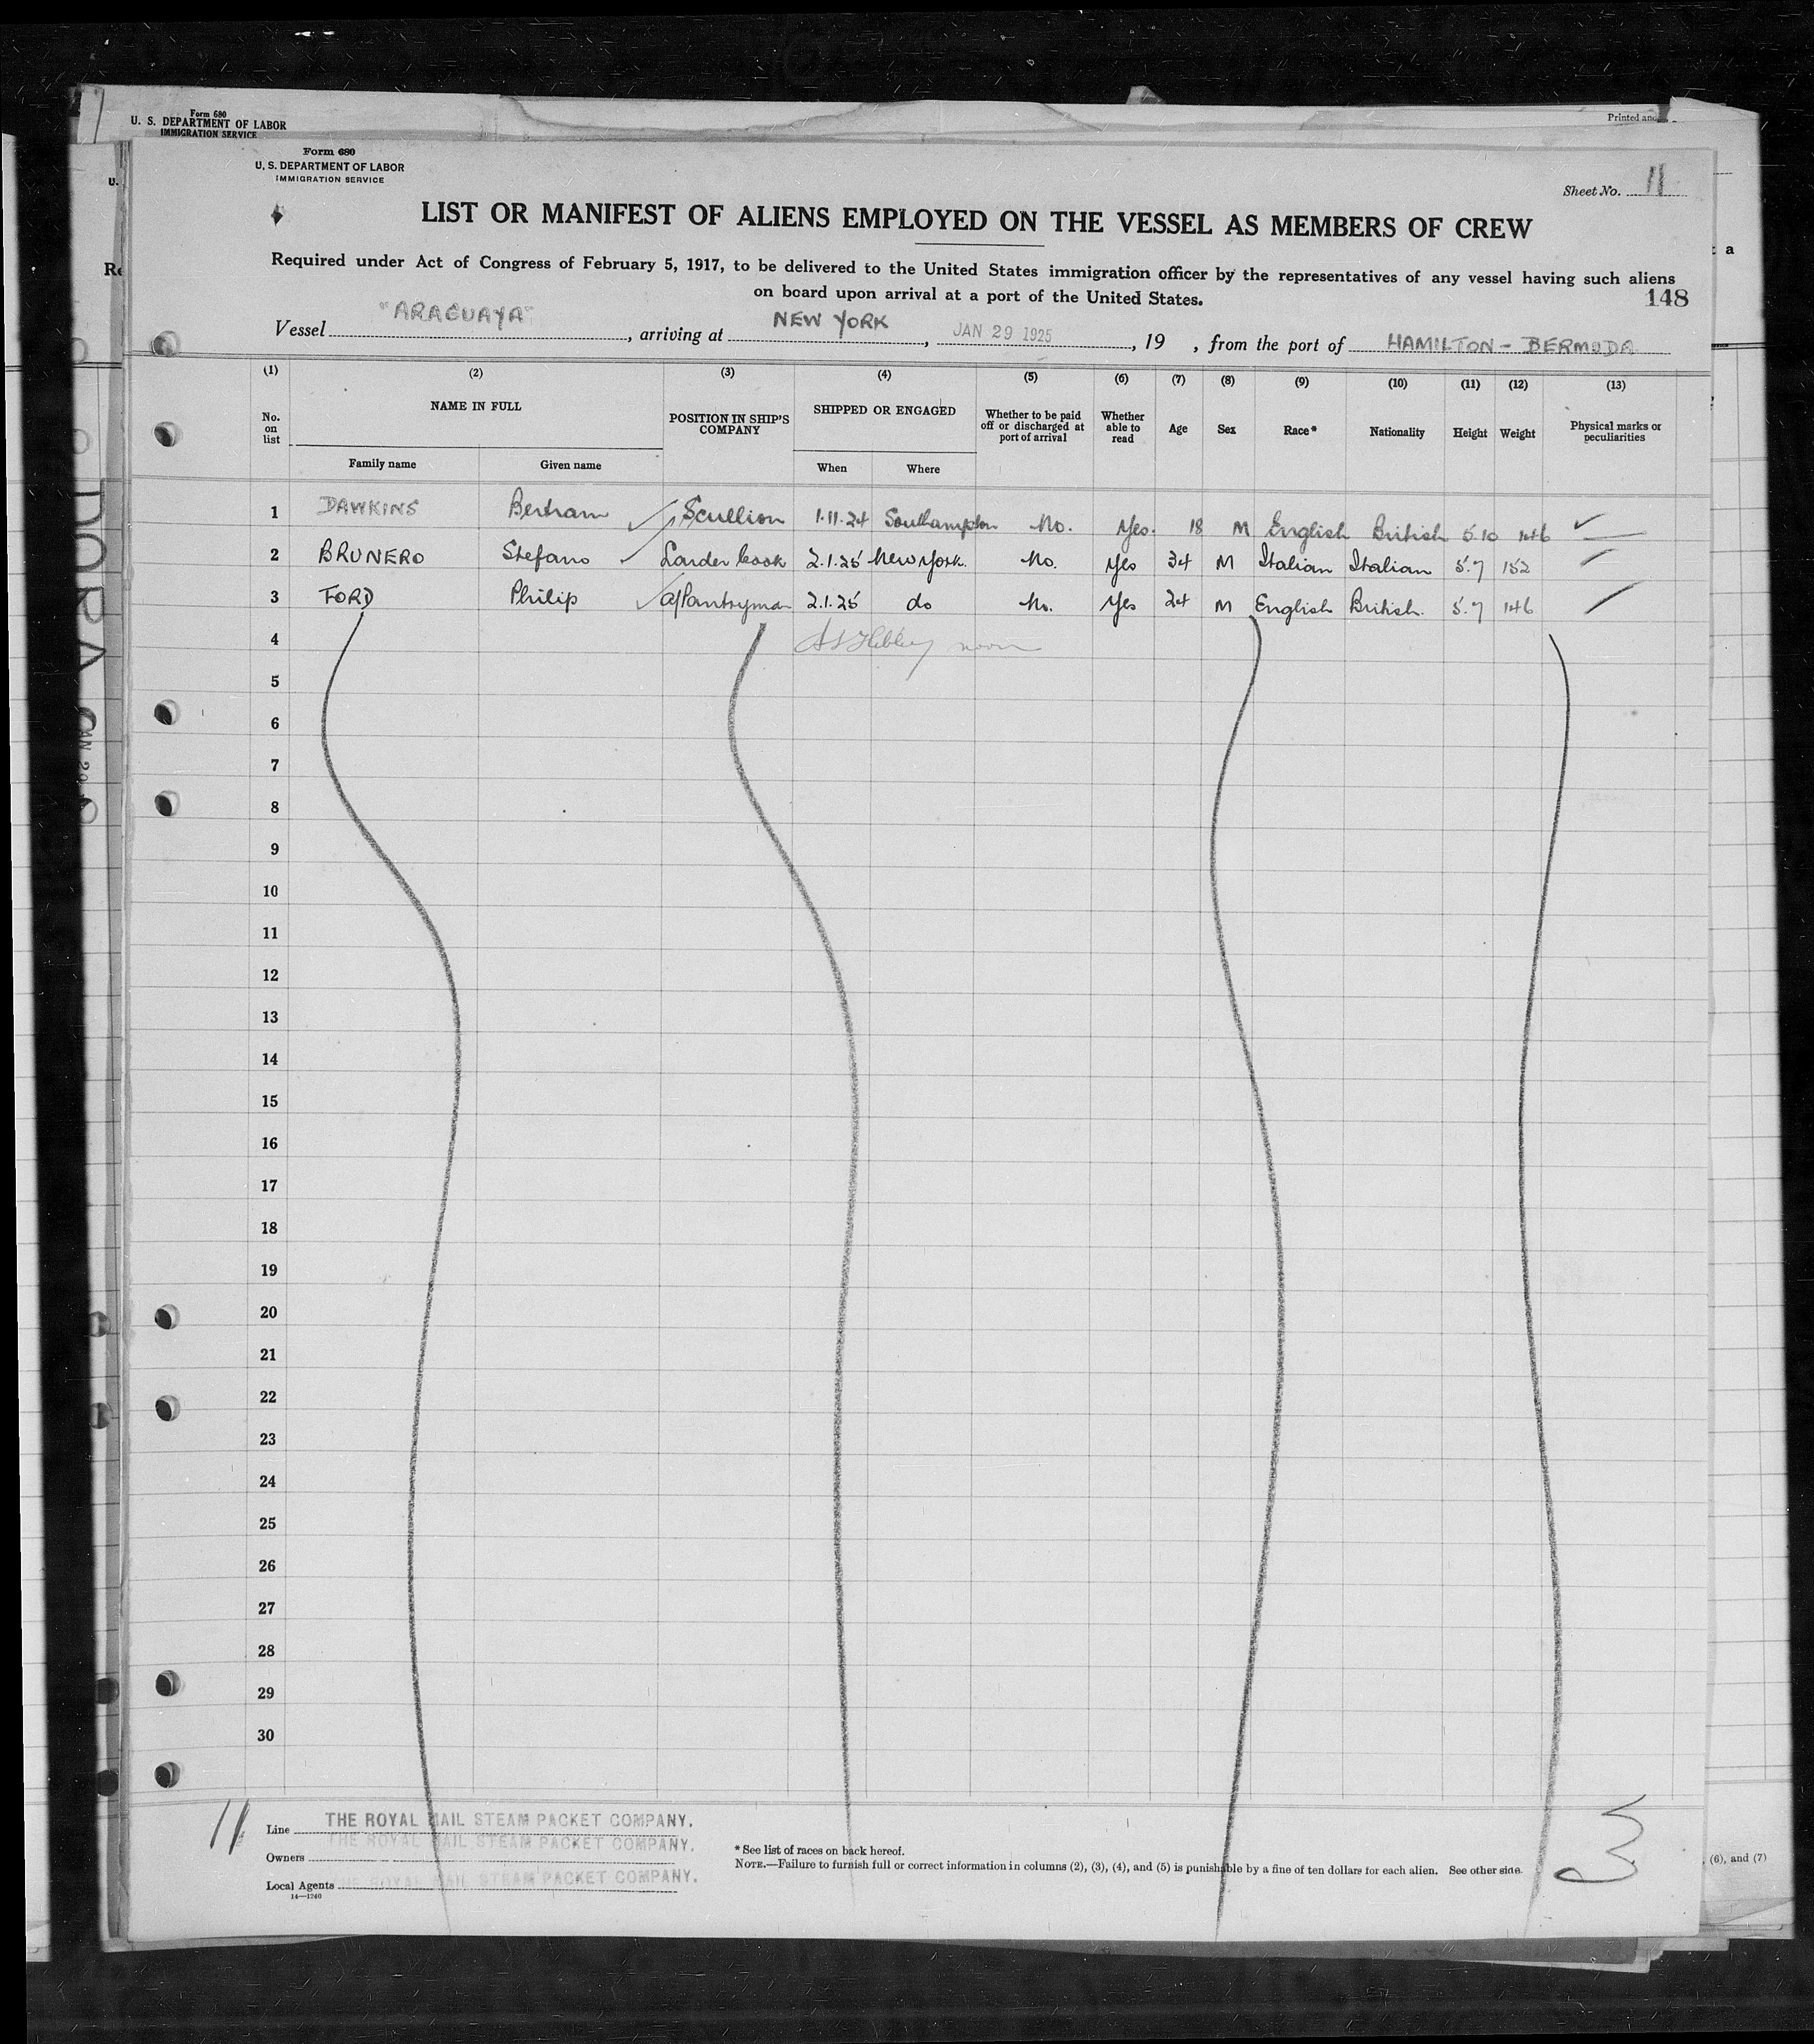 Form 680
U. S. DEPARTMENT OF LABOR
IMMIGRATION SERVICE
Printed and
Form 680
U. S. DEPARTMENT OF LABOR
IMMIGRATION SERVICE
Sheet No. 11
LIST OR MANIFEST OF ALIENS EMPLOYED ON THE VESSEL AS MEMBERS OF CREW
Required under Act of Congress of February 5, 1917, to be delivered to the United States immigration officer by the representatives of any vessel having such aliens
on board upon arrival at a port of the United States.
148
Vessel "ARAGUAYA", arriving at NEW YORK, JAN 29 1925, 19 , from the port of HAMILTON - BERMUDA
(1) (2) (3) (4) (5) (6) (7) (8) (9) (10) (11) (12) (13)
No. on list NAME IN FULL POSITION IN SHIP'S COMPANY SHIPPED OR ENGAGED Whether to be paid off or discharged at port of arrival Whether able to read Age Sex Race* Nationality Height Weight Physical marks or peculiarities
Family name Given name When Where
1 DAWKINS Bertram Scullion 1.11.24 Southampton No. Yes. 18 M English British 5.10 146
2 BRUNERO Stefano Larder Cook 2.1.25 New York. No. Yes 34 M Italian Italian 5.7 152
3 FORD Philip a/Pantryman 2.1.25 do No. Yes 24 M English British. 5.7 146
4
5
6
7
8
9
10
11
12
13
14
15
16
17
18
19
20
21
22
23
24
25
26
27
28
29
30
11
Line THE ROYAL MAIL STEAM PACKET COMPANY.
Owners THE ROYAL MAIL STEAM PACKET COMPANY.
Local Agents THE ROYAL MAIL STEAM PACKET COMPANY.
14—1240
* See list of races on back hereof.
NOTE.—Failure to furnish full or correct information in columns (2), (3), (4), and (5) is punishable by a fine of ten dollars for each alien. See other side.
3
, (6), and (7)